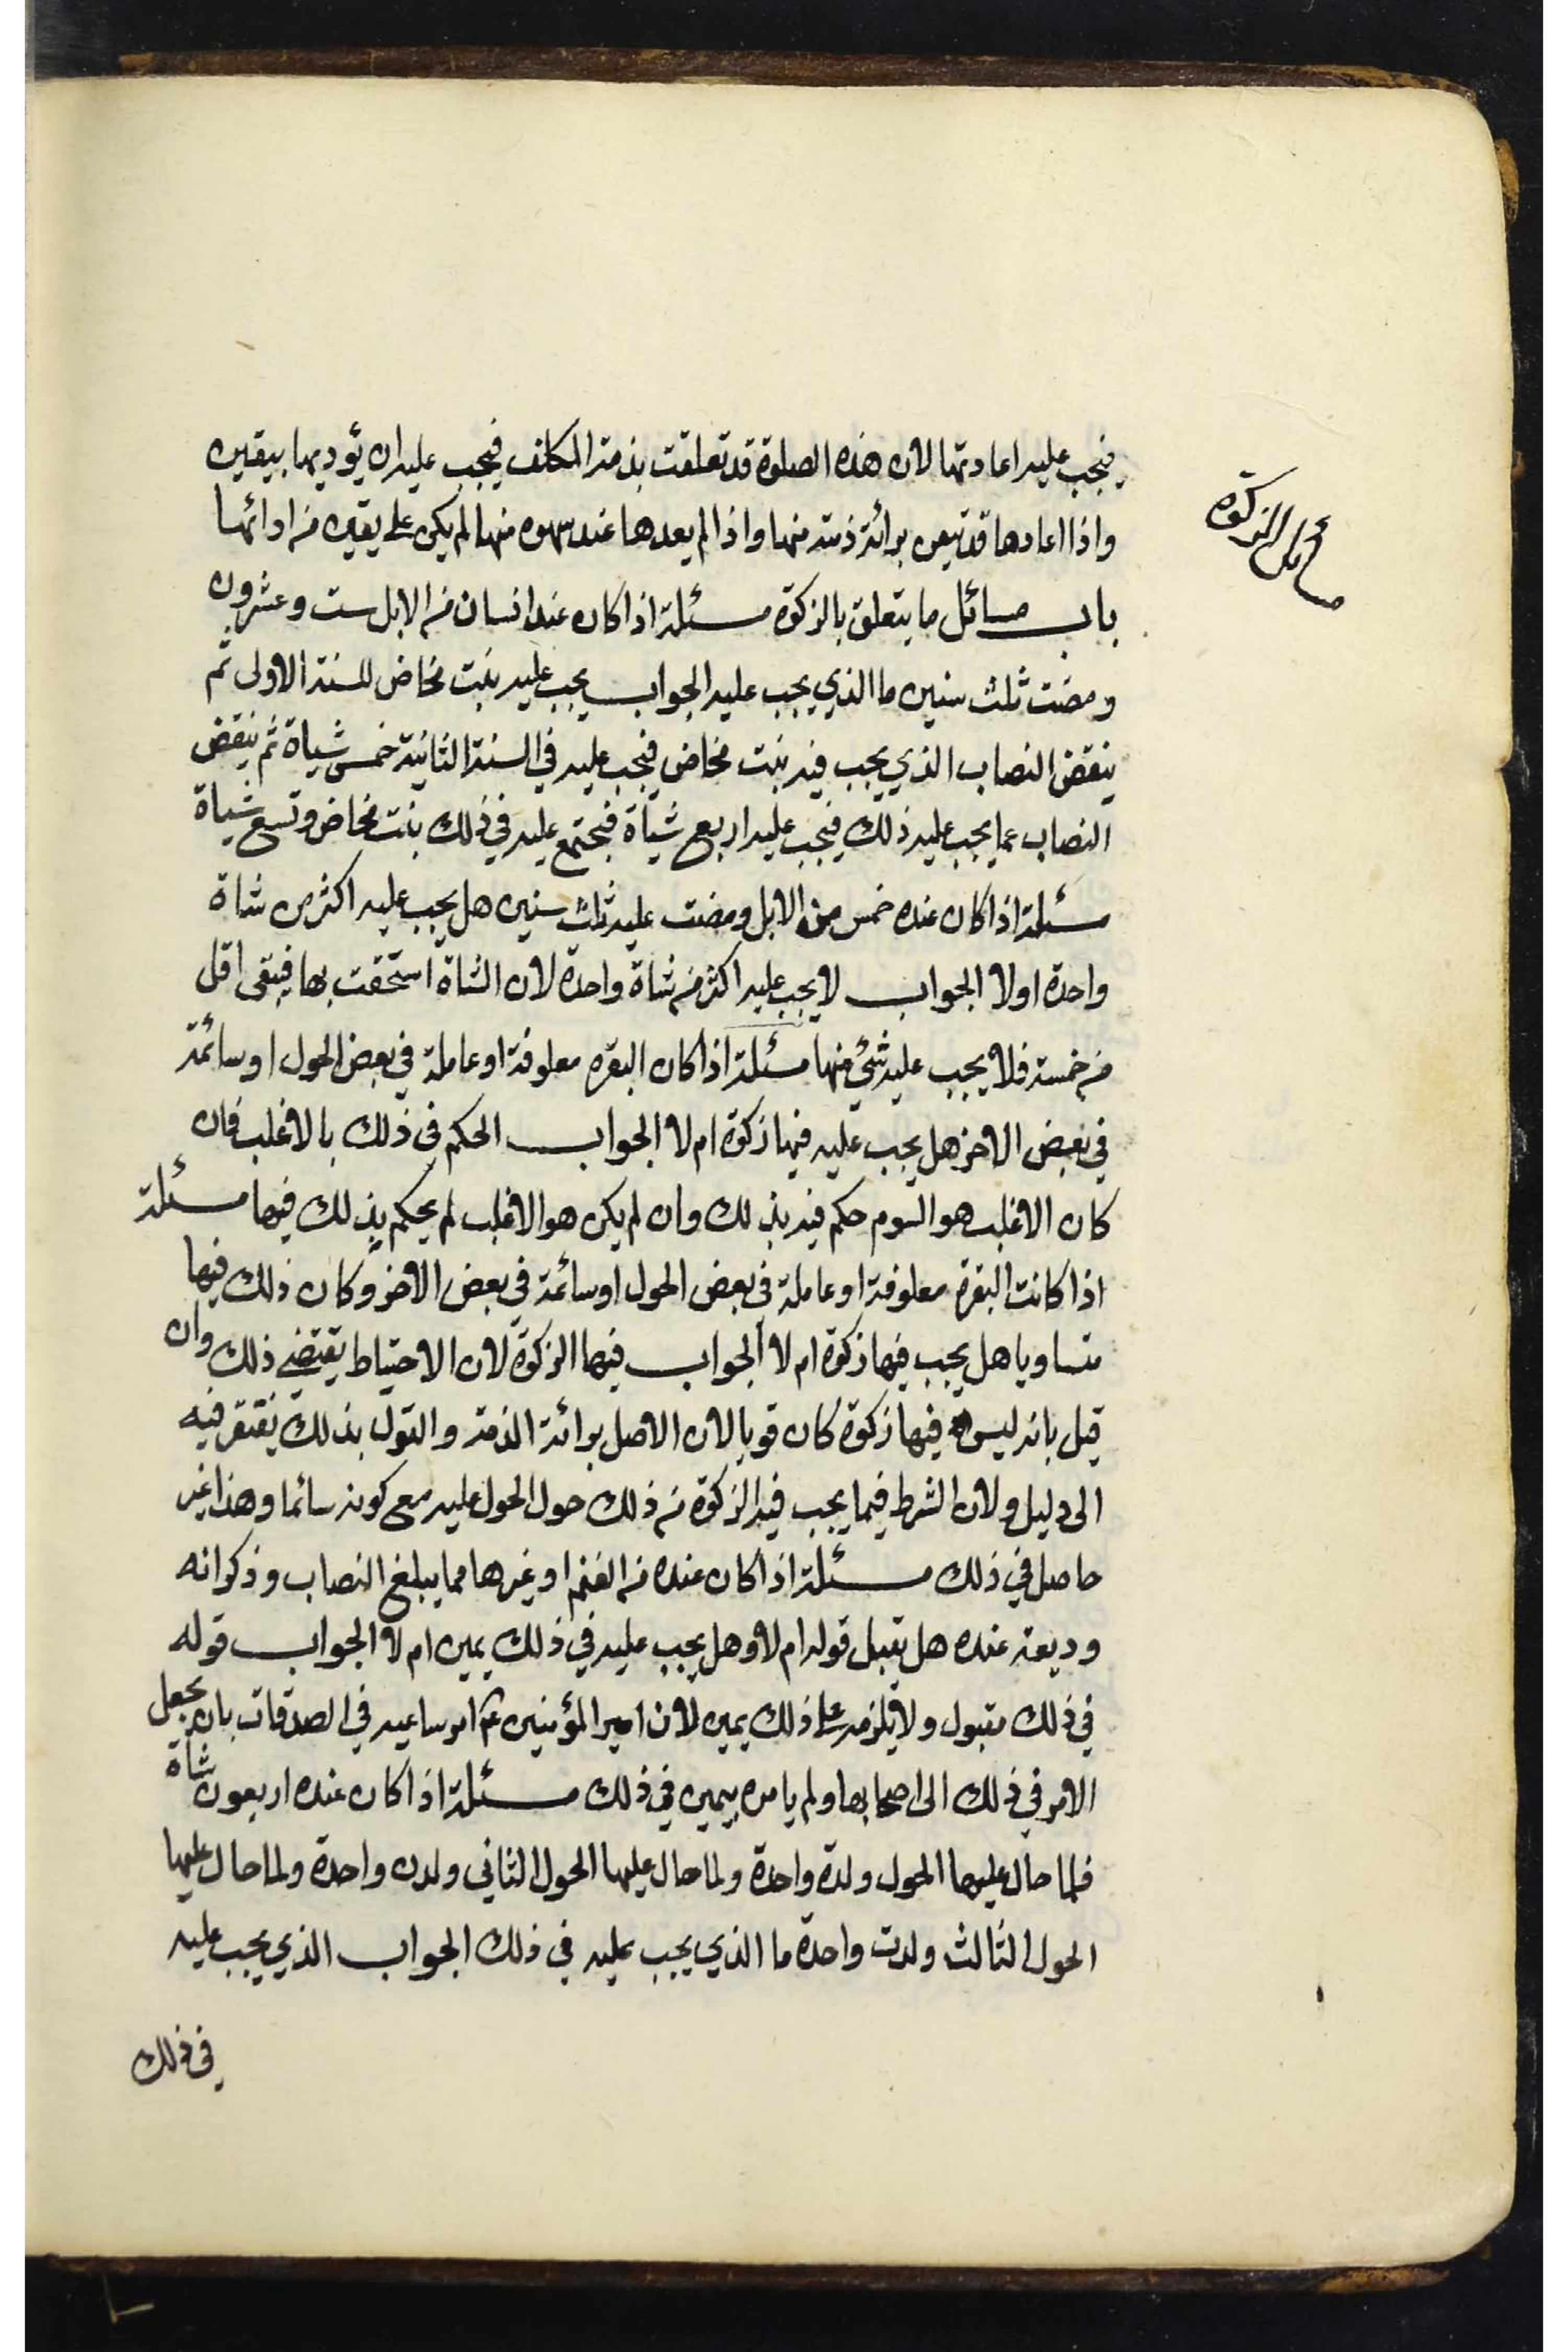 مسائل الزكوة
فيجب عليه اعادتها لان هذه الصلوة قد تعلقت بذمة المكلف فيجب عليه ان يؤديها بيقين
واذا اعادها قد تيقن برائة ذمته منها واذا لم يعدها عند سهوه منها لم يكن على يقين من ادائها
باب مسائل ما يتعلق بالزكوة مسئلة اذا كان عند انسان من الابل ست وعشرون
ومضت ثلث سنين ما الذي يجب عليه الجواب يجب عليه بنت مخاض للسنة الاولى ثم
ينقض النصاب الذي يجب فيه بنت مخاض فيجب عليه في السنة الثانية خمس شياة ثم ينقض
النصاب عما يجب عليه ذلك فيجب عليه اربع شياة فيجتمع عليه في ذلك بنت مخاض وتسع شياة
مسئلة اذا كان عنده خمس من الابل ومضت عليه ثلث سنين هل يجب عليه اكثر من شاة
واحدة اولا الجواب لا يجب عليه اكثر من شاة واحدة لان الشاة استحقت بها فيبقى اقل
من خمسة فلا يجب عليه شئ منها مسئلة اذا كان البقره معلوفة او عاملة في بعض الحول او سائمة
في بعض الاخر هل يجب عليه فيها زكوة ام لا الجواب الحكم في ذلك بالاغلب فان
كان الاغلب هو السوم حكم فيه بذلك وان لم يكن هو الاغلب لم يحكم بذلك فيها مسئلة
اذا كانت البقرة معلوفة او عاملة في بعض الحول او سائمة في بعض الاخر وكان ذلك فيها
متساويا هل يجب فيها زكوة ام لا الجواب فيها الزكوة لان الاحتياط يقتضي ذلك وان
قيل بانه ليس فيها زكوة كان قويا لان الاصل برائة الذمة والقول بذلك يفتقر فيه
الى دليل ولان الشرط فيما يجب فيه الزكوة من ذلك حول الحول عليه مع كونه سائما وهذا غير
حاصل في ذلك مسئلة اذا كان عنده من الغنم او غيرها مما يبلغ النصاب وذكر انه
وديعة عنده هل تقبل قوله ام لا وهل يجب عليه في ذلك يمين ام لا الجواب قوله
في ذلك مقبول ولا يلزمه على ذلك يمين لان امير المؤمنين ع امر ساعيه في الصدقات بان يجعل
الامر في ذلك الى اصحابها ولم يامره بيمين في ذلك مسئلة اذا كان عنده اربعون شاة
فلما حال عليها الحول ولدة واحدة ولما حال عليها الحول الثاني ولدن واحدة ولما حال عليها
الحول الثالث ولدت واحدة ما الذي يجب عليه في ذلك الجواب الذي يجب عليه
في ذلك